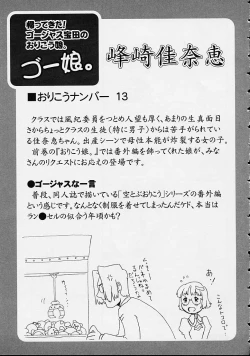 帰ってきた!
ゴージャス宝田の
おりこう娘。
ゴー娘。
峰崎佳奈恵
■おりこうナンバー 13
クラスでは風紀委員をつとめ人望も厚く、あまりの生真面目
さからちょっとクラスの生徒(特に男子)からは苦手がられてい
る佳奈恵ちゃん。出産シーンで母性本能が炸裂する女の子。
前巻の『おりこう娘。』では番外編を飾ってくれた娘が、みな
さんのリクエストにお応えの登場です。
●ゴージャスな一言
普段、同人誌で描いている「空とぶおりこう」シリーズの番外編
という感じです。なんとなく制服を着せてしまったんだケド、本当は
ラン●セルの似合う年頃かも?
あ!